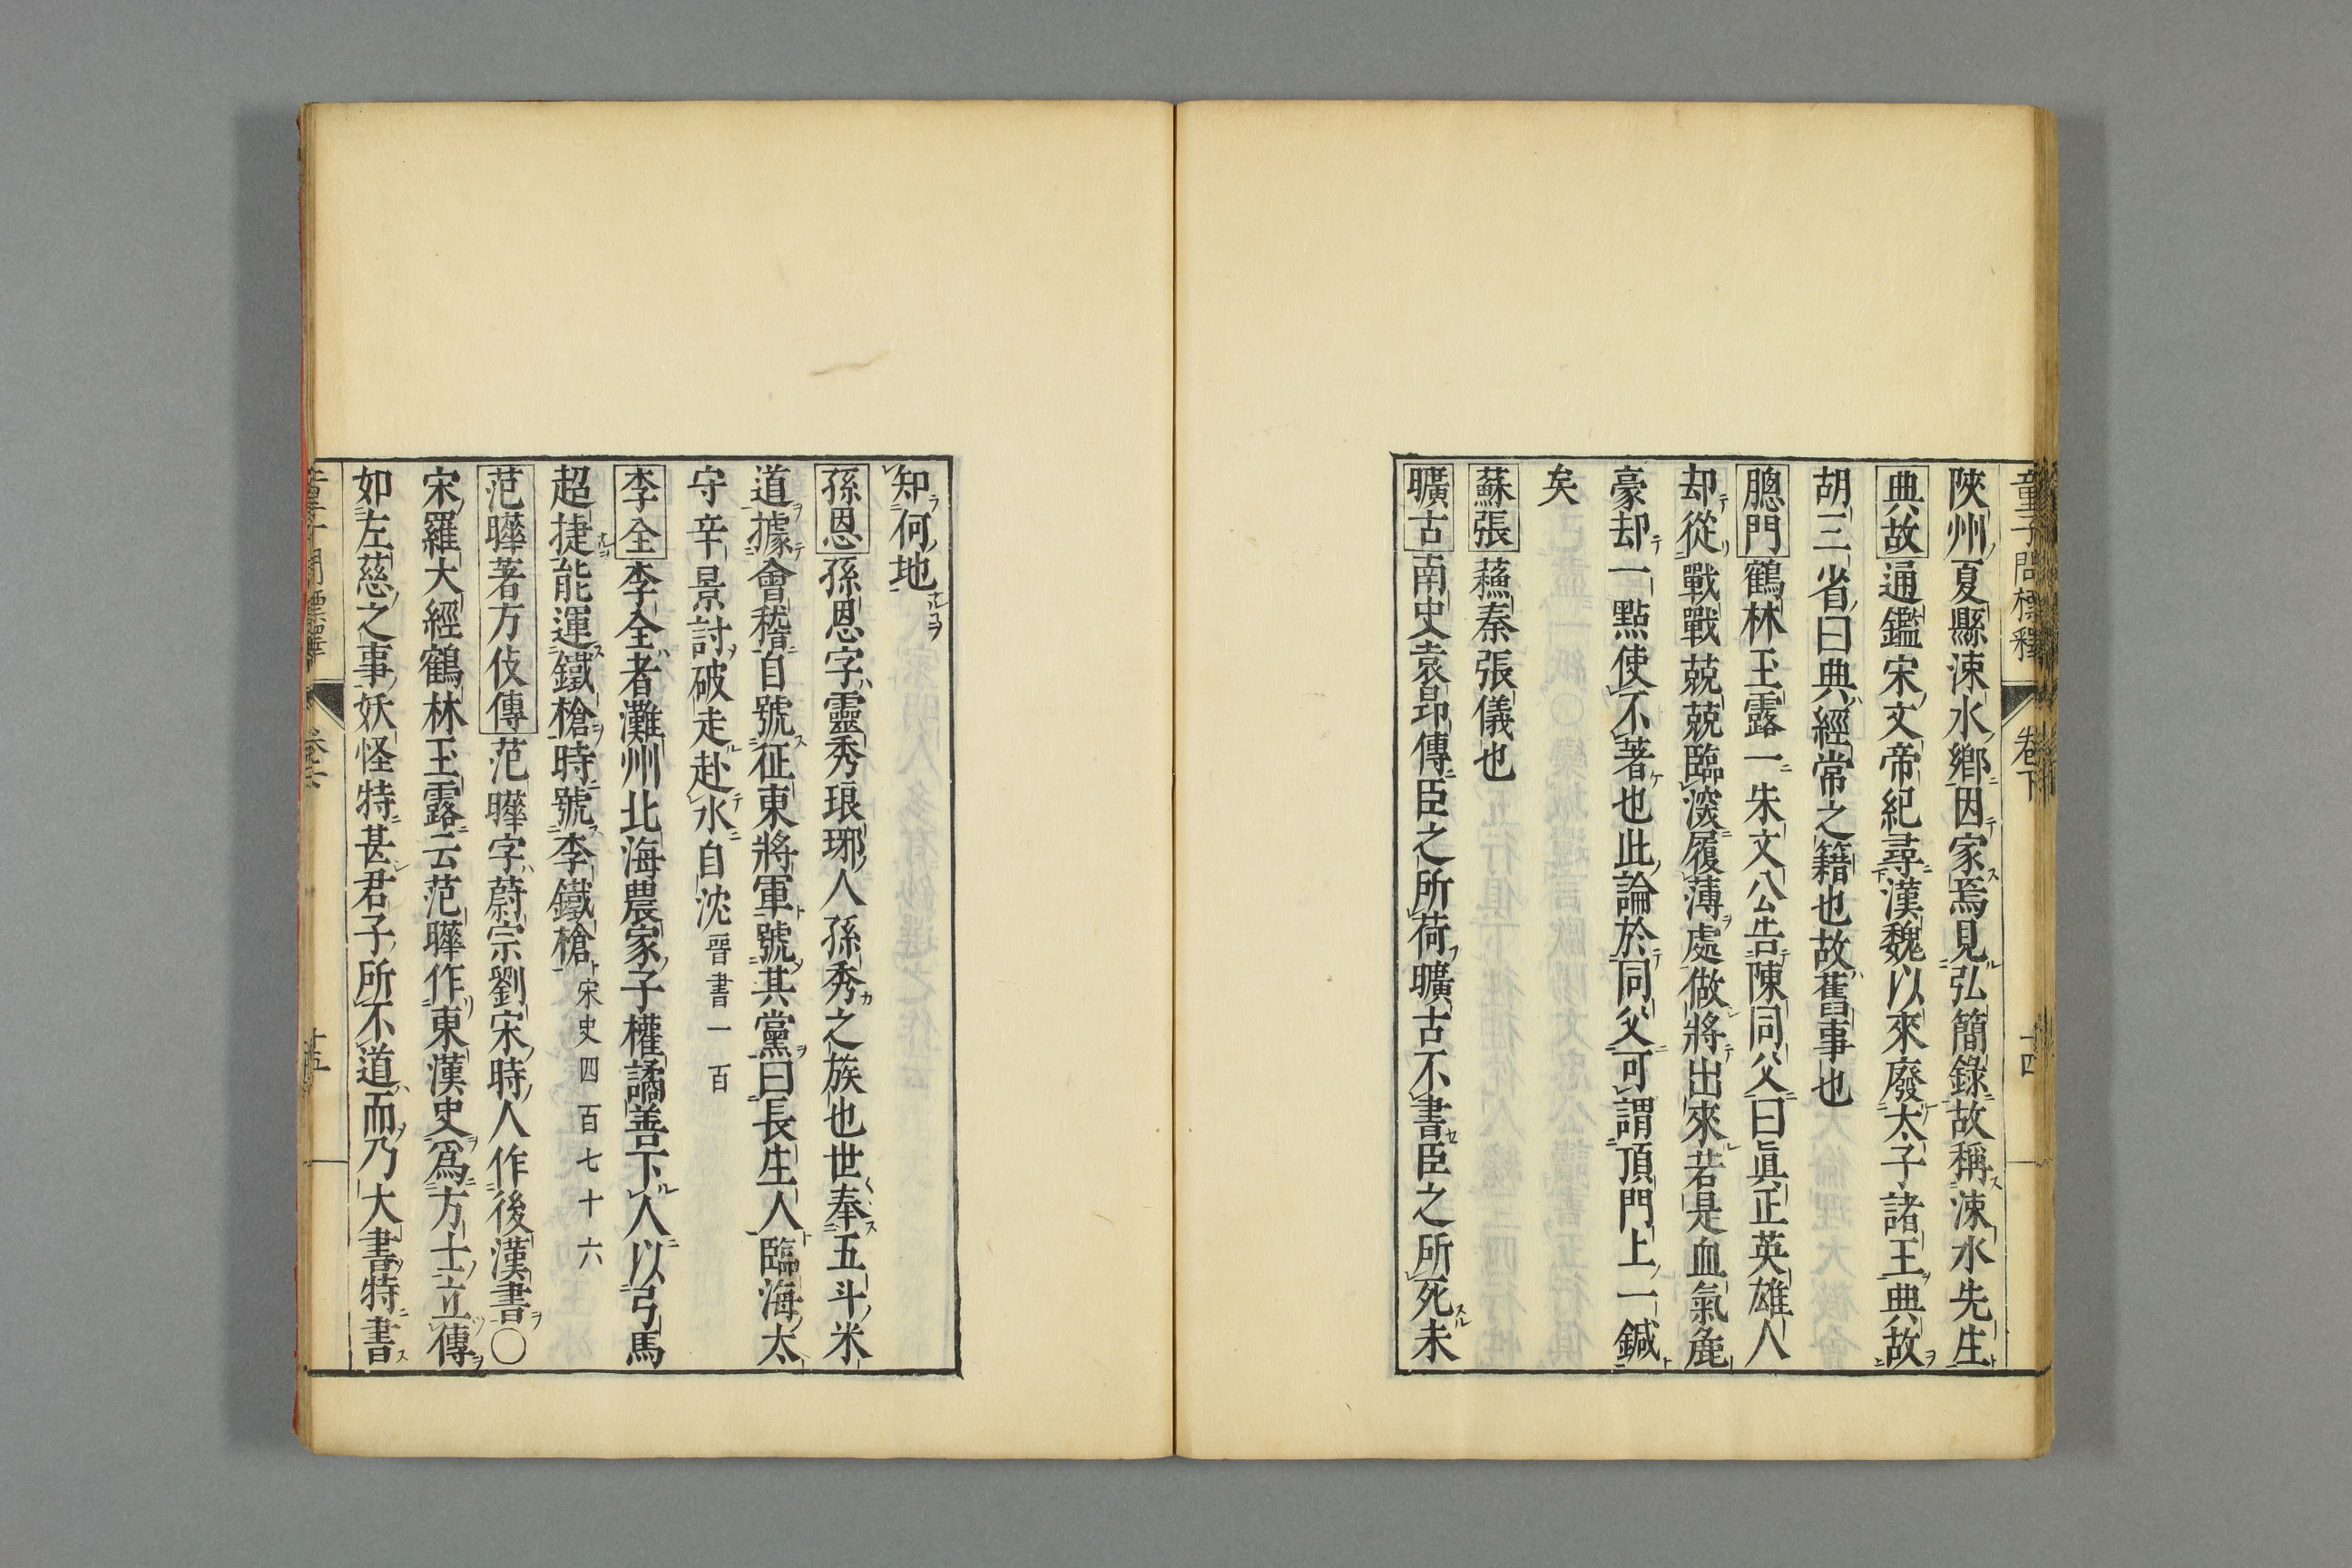 童子問標釋 卷下 十四
陝州夏縣涑水鄉因家焉見弘簡錄故稱涑水先生
典故通鑑宋文帝紀尋漢魏以來廢太子諸王典故
胡三省曰典經常之籍也故舊事也
聰門鶴林玉露一朱文公告陳同父曰眞正英雄人
却從戰戰兢兢臨深履薄處做將出來若是血氣麁
豪却一點使不著也此論於同父可謂頂門上一鍼
矣
蘇張蘓秦張儀也
曠古南史袁昂傳臣之所荷曠古不書臣之所死未
知何地
孫恩孫恩字靈秀琅琊人孫秀之族也世奉五斗米
道據會稽自號征東將軍號其黨曰長生人臨海太
守辛景討破走赴水自沈晉書一百
李全李全者濰州北海農家子權譎善下人以弓馬
超捷能運鐵槍時號李鐵槍宋史四百七十六
范曄著方伎傳范曄字蔚宗劉宋時人作後漢書○
宋羅大經鶴林玉露云范曄作東漢史爲方士立傳
如左慈之事妖怪特甚君子所不道而乃大書特書
十五